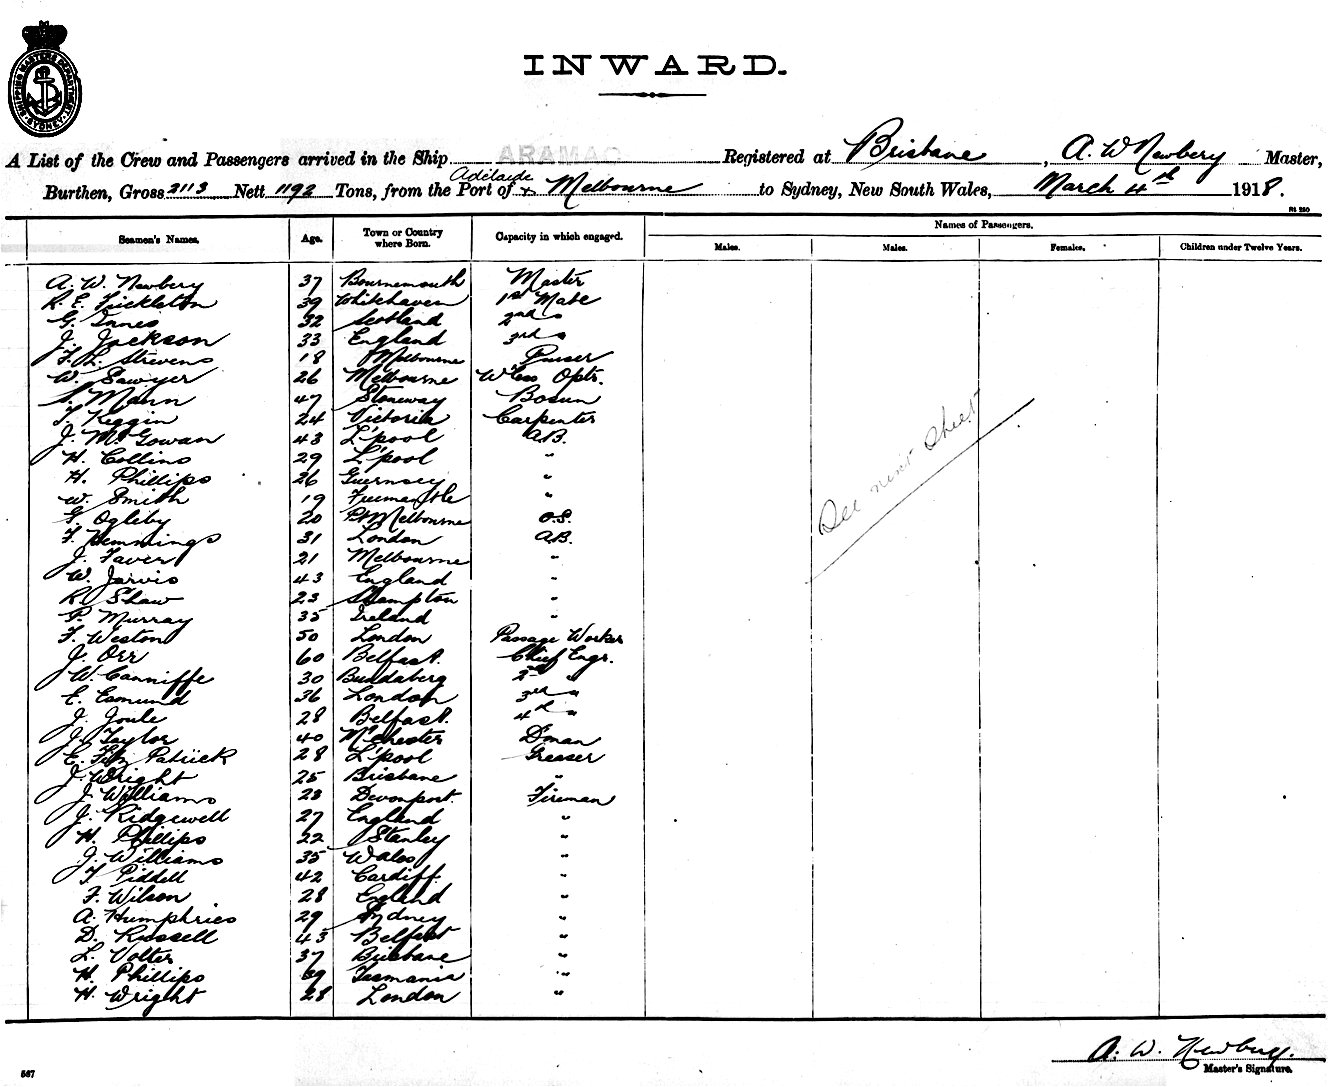 SHIPPING MASTERS DEPARTMENT
SYDNEY
INWARD.
A List of the Crew and Passengers arrived in the Ship ARAMAC Registered at Brisbane, A. W Newbery Master,
Burthen, Gross 2113 Nett 1192 Tons, from the Port of Adelaide & Melbourne to Sydney, New South Wales, March 4th 1918.
Seamen's Names. Age. Town or Country where Born. Capacity in which engaged. Names of Passengers.
Males. Males. Females. Children under Twelve Years.
A. W. Newbery 37 Bournemouth Master
R. E. Tickleton 39 Whitehaven 1st Mate
G. Innes 32 Scotland 2nd "
J. Jackson 33 England 3rd "
F. L. Strevens 18 Melbourne Purser
W. Sawyer 26 Melbourne W'less Optr.
Mann 47 Stoneway Bosun
T. Keggin 24 Victoria Carpenter
J. McGowan 43 L'pool A.B.
H. Collins 29 L'pool "
H. Phillips 26 Guernsey "
W. Smith 19 Freemantle "
G. Ogleby 20 Pt Melbourne O.S.
F. Hemmings 31 London A.B.
J. Faver 21 Melbourne "
W. Jarvis 43 England "
R. Shaw 23 S'hampton "
P. Murray 35 Ireland "
F. Weston 50 London Passage Worker
J. Orr 60 Belfast. Chief Engr.
W. Canniffe 30 Bundaberg 2nd "
E. Esmund 36 London 3rd "
J. Joule 28 Belfast. 4th "
J. Taylor 40 M'chester D'man
E. Fitz Patrick 28 L'pool Greaser
J. Wright 25 Brisbane "
J. Williams 23 Devonport. Fireman
J. Ridgewell 27 England "
H. Phillips 22 Stanley "
J. Williams 35 Wales "
T. Piddell 42 Cardiff. "
F. Wilson 28 England "
A. Humphries 29 Sydney "
D. Russell 43 Belfast "
L. Volter 37 Brisbane "
H. Phillips 39 Tasmania "
H. Wright 28 London "
See next sheet
A. W. Newbery.
Master's Signature.
567